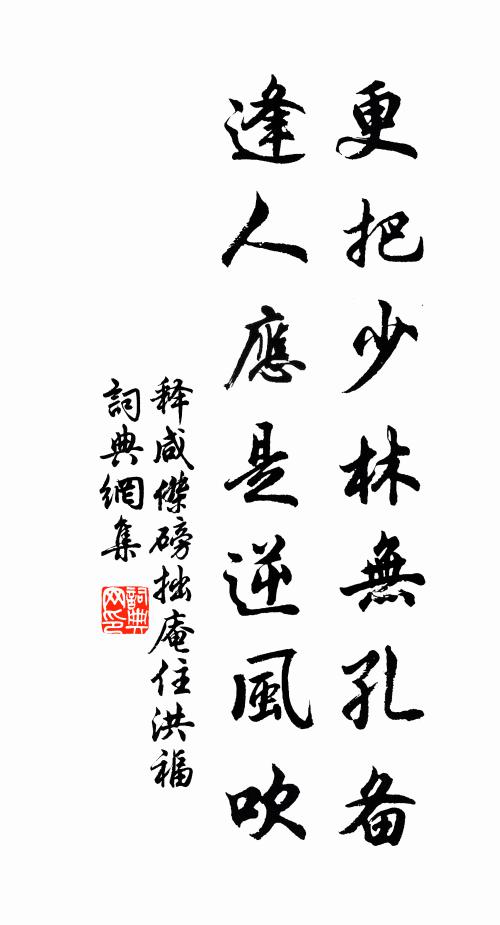 更把少林無孔备
逢人應是逆風吹
释咸傑磅拙庵住洪福
詞典網集
詞典
网印